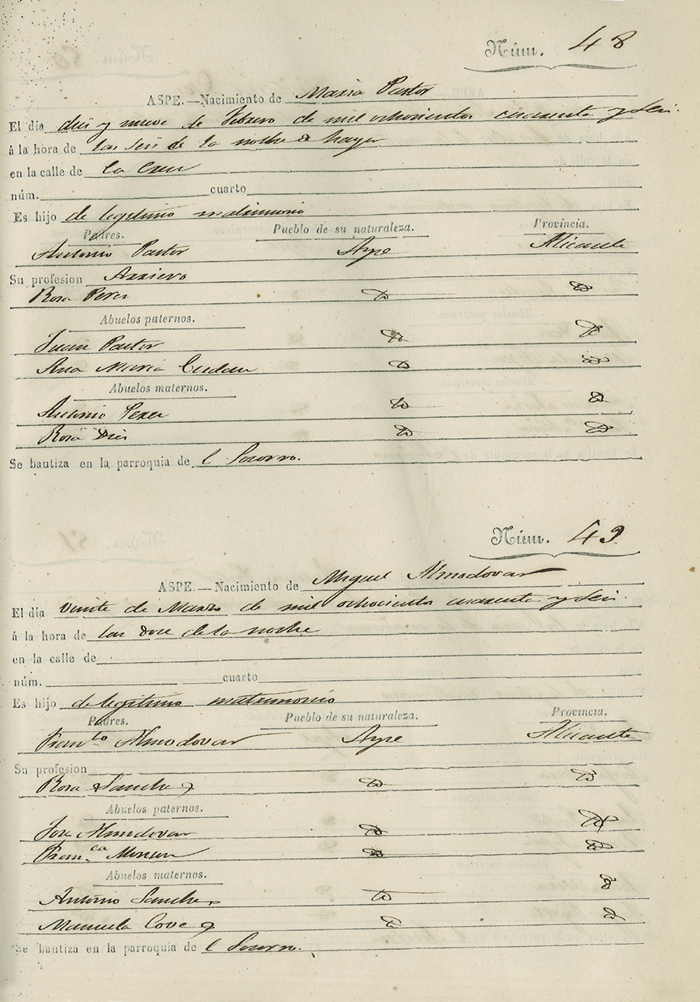 Núm. 48
ASPE.—Nacimiento de Maria Pastor
El dia diez y nueve de Febrero de mil ochocientos cuarenta y seis
á la hora de las seis de la noche de
en la calle de la Cruz
núm. cuarto
Es hijo de legitimo matrimonio
Padres. Pueblo de su naturaleza. Provincia.
Antonio Pastor Aspe Alicante
Su profesion Arriero
Rosa Perez
Abuelos paternos.
Juan Pastor
Ana Maria
Abuelos maternos.
Antonio Perez
Rosa
Se bautiza en la parroquia de l Socorro.
Núm. 49
ASPE.—Nacimiento de Miguel Almodovar
El dia veinte de Marzo de mil ochocientos cuarenta y seis
á la hora de las doce de la noche
en la calle de
núm. cuarto
Es hijo de legitimo matrimonio
Padres. Pueblo de su naturaleza. Provincia.
Franco Almodovar Aspe Alicante
Su profesion
Rosa Sanchez
Abuelos paternos.
Jose Almodovar
Franca
Abuelos maternos.
Antonio Sanchez
Manuela
Se bautiza en la parroquia de l Socorro.